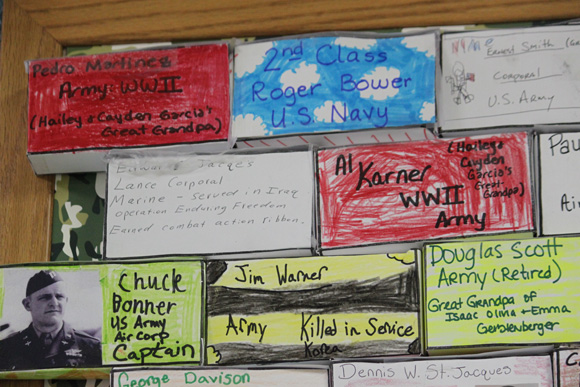 Pedro Martinez
Army WWII
(Hailey & Cayden Garcia's
Great Grandpa)
2nd Class
Roger Bower
U.S. Navy
Ernest Smith
Corporal
U.S. Army
Jacques
Lance Corporal
Marine - Served in Iraq
Operation Enduring Freedom
Earned combat action ribbon.
Al
Karner
WWII
Army
(Hailey &
Cayden
Garcia's
Great-
Grandpa)
Chuck
Bonner
US Army
Air Corp
Captain
Jim Warner
Army Killed in Service
Korea
Douglas Scott
Army (Retired)
Great Grandpa of
Isaac Olivia + Emma
Gerstenberger
George Davison
Dennis W. St. Jacques